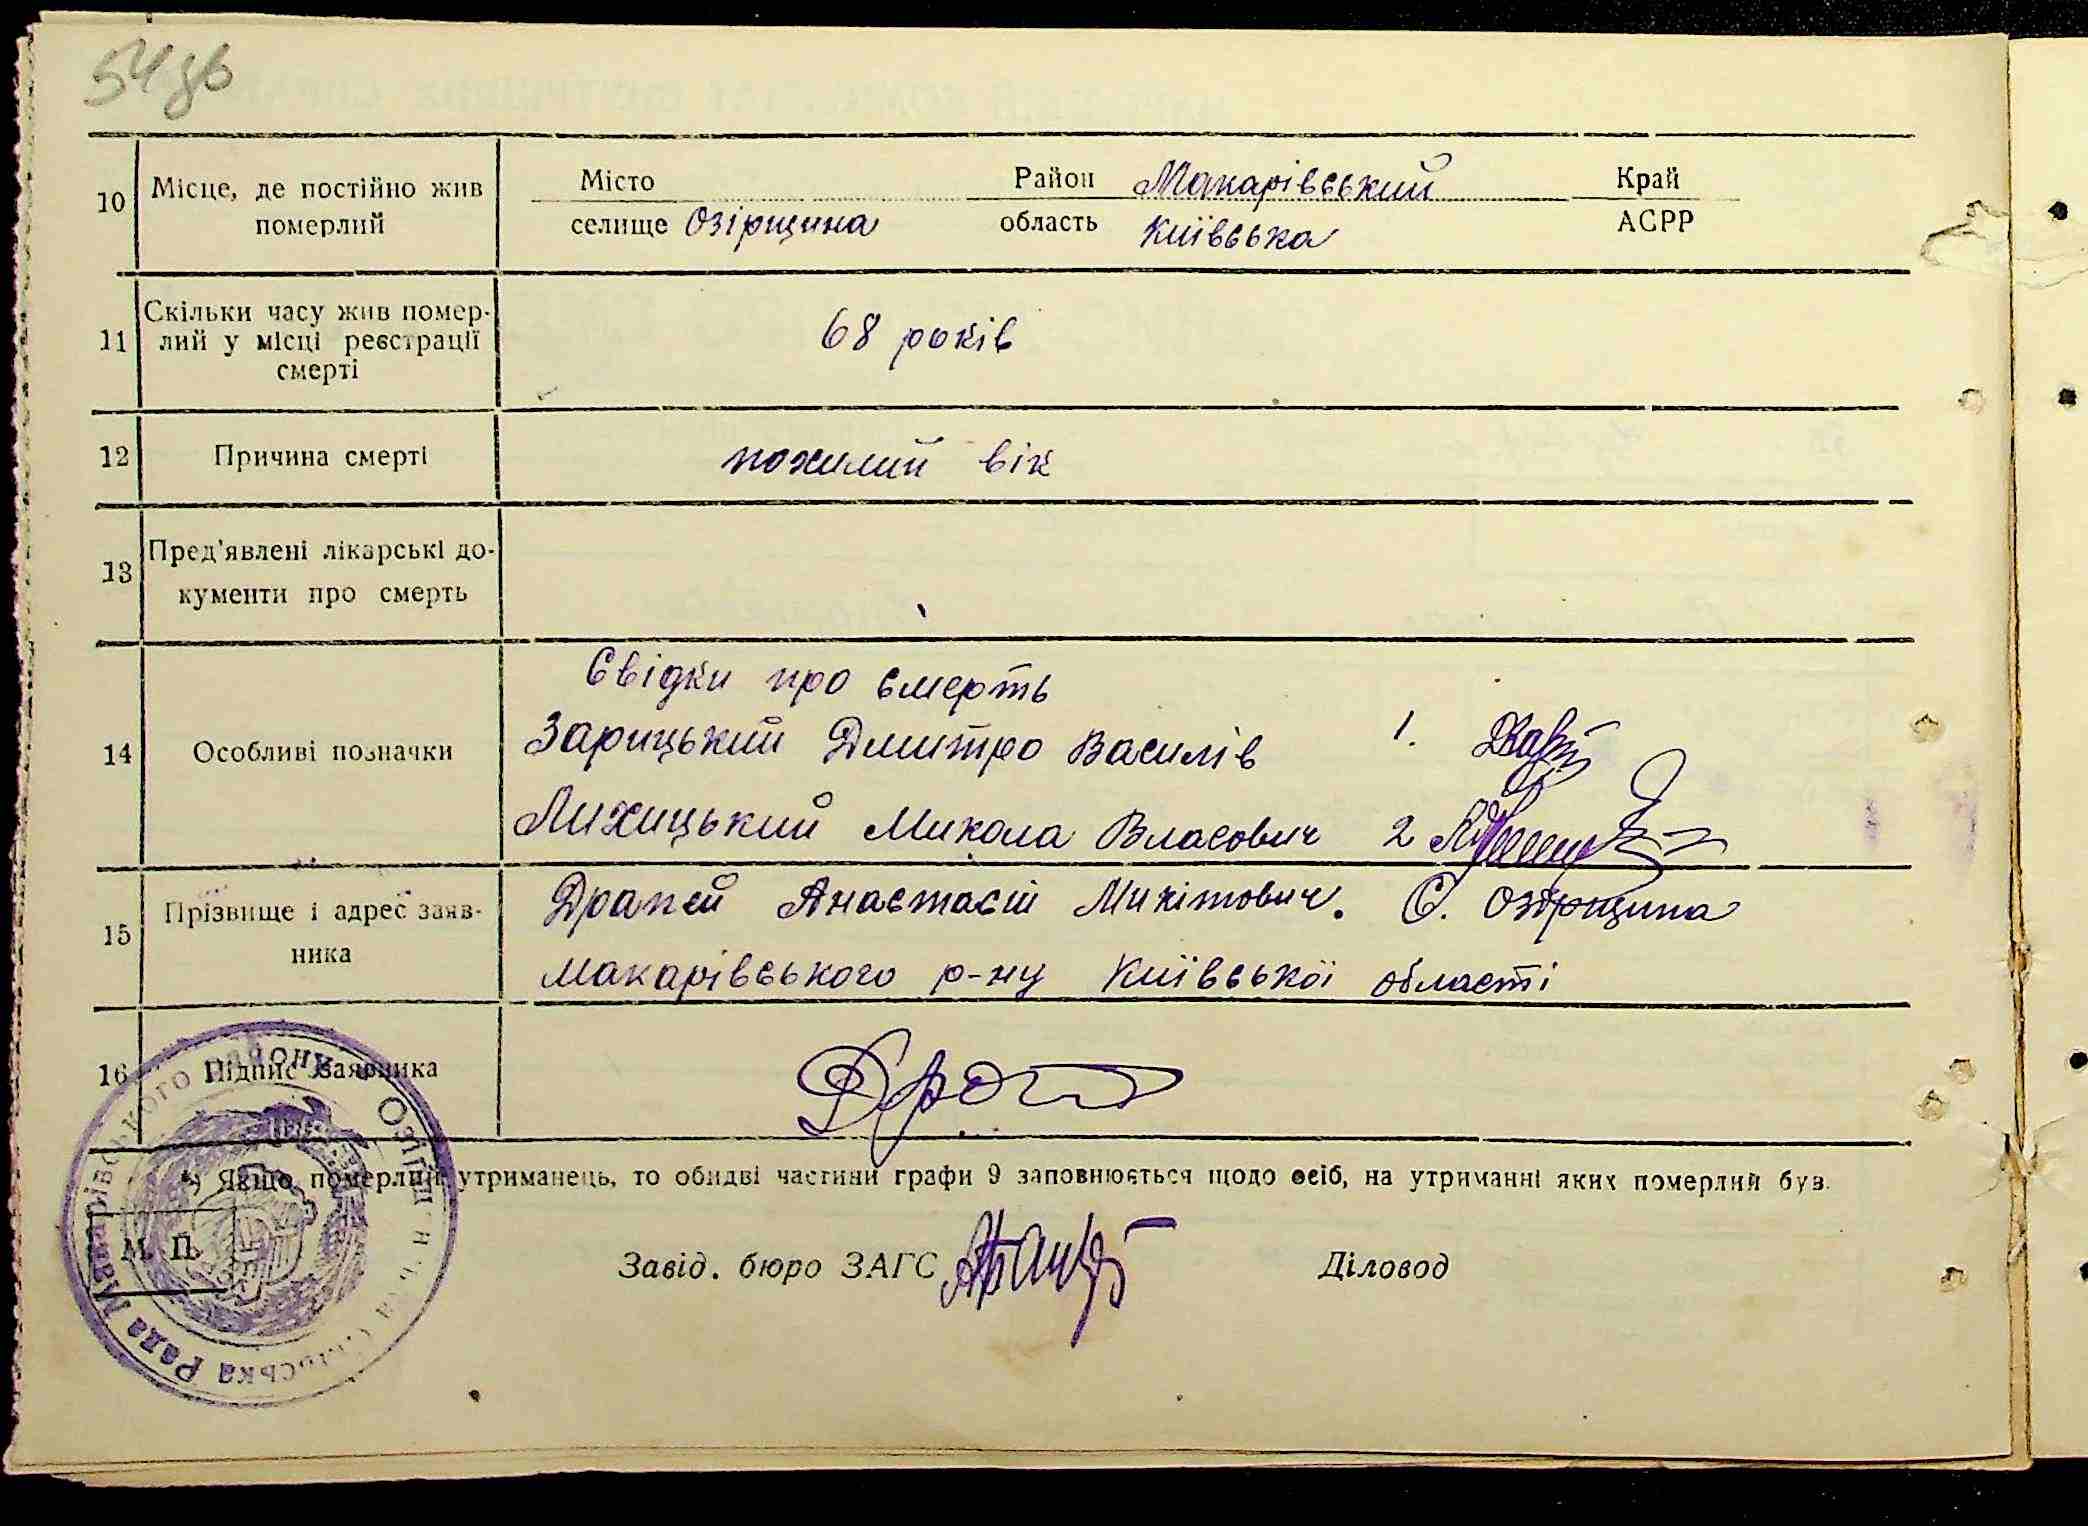 54 зв
10 Місце, де постійно жив померлий
Місто Район Макарівський Край
селище Озірщина область Київська АСРР
11 Скільки часу жив помер-
лий у місці реєстрації
смерті
68 років
12 Причина смерті похилий вік
13 Пред'явлені лікарські до-
кументи про смерть
14 Особливі позначки
Свідки про смерть
Зарицький Дмитро Василів 1.
Лихицький Микола Власович 2
15 Прізвище і адрес заяв-
ника
Драпей Анастасій Микітович. С. Озірщина
Макарівського р-ну Київської області
16 Підпис заявника
*) Якщо померлий утриманець, то обидві частини графи 9 заповнюється щодо осіб, на утриманні яких померлий був.
М. П.
Завід. бюро ЗАГС Діловод
Рада Макарівського району